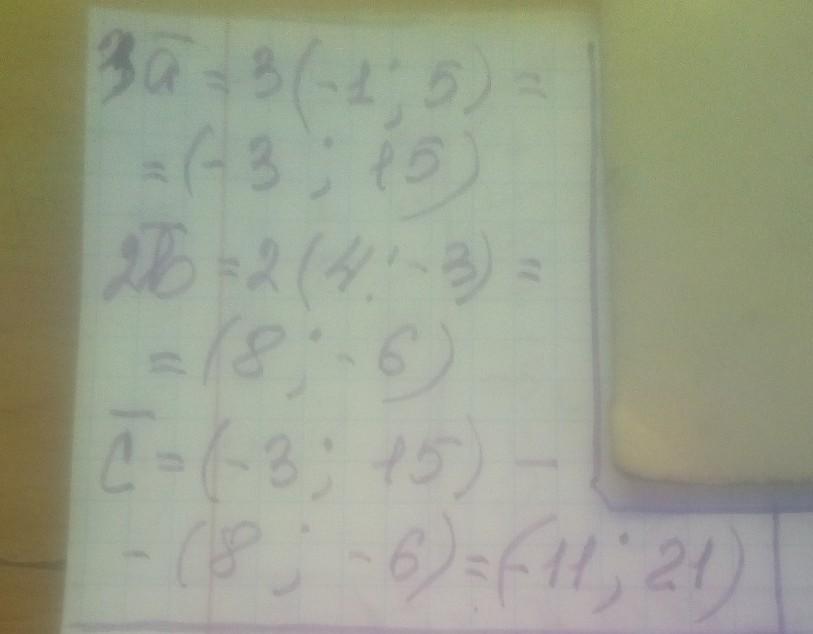 3a̅ = 3(-1; 5) =
= (-3; 15)
2b̅ = 2(4; -3) =
= (8; -6)
c̅ = (-3; 15) -
- (8; -6) = (-11; 21)